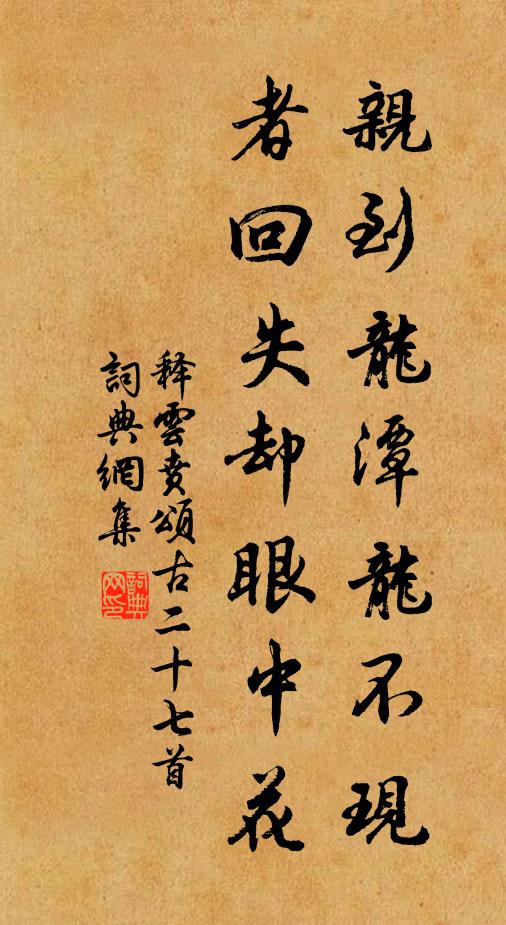 親到龍潭龍不現
者回失却眼中花
释雲賁頌古二十七首
詞典網集
詞典网印